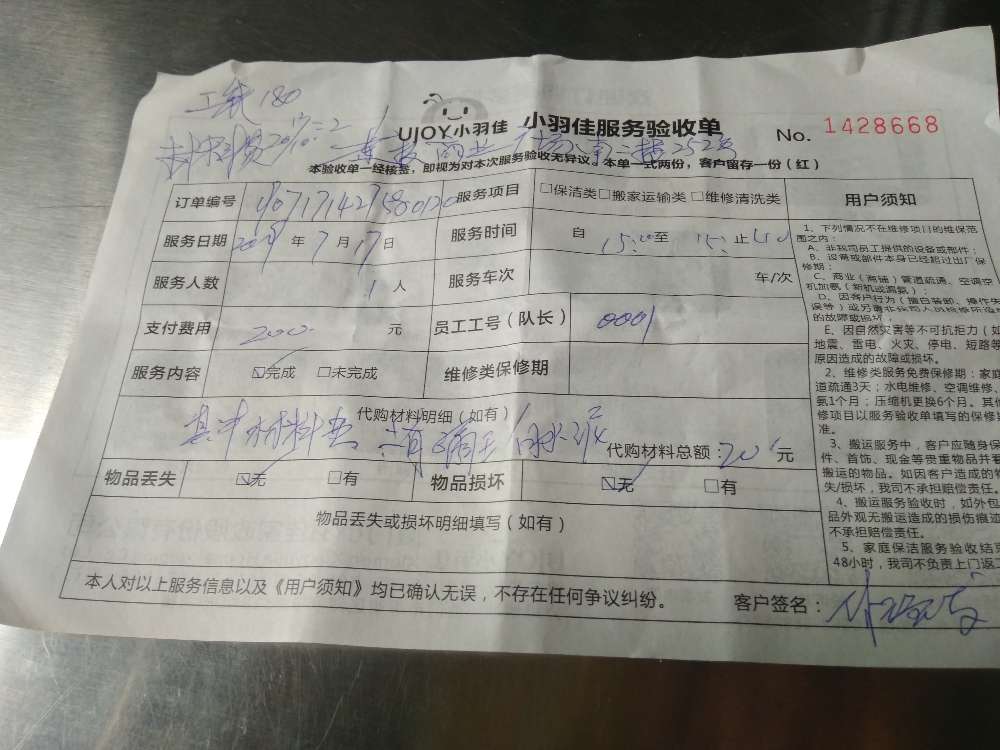 工钱180
UJOY小羽佳 小羽佳服务验收单 No. 1428668
材料费20
本验收单一经核签，即视为对本次服务验收无异议。本单一式两份，客户留存一份（红）
订单编号 服务项目 □保洁类□搬家运输类 □维修清洗类
服务日期 年7月17日 服务时间 自 15:00至 止
服务人数 1人 服务车次 车/次
支付费用 200 元 员工工号（队长） 0001
服务内容 ☑完成 □未完成 维修类保修期
代购材料明细（如有）
其中材料费 代购材料总额：20元
物品丢失 ☑无 □有 物品损坏 ☑无 □有
物品丢失或损坏明细填写（如有）
本人对以上服务信息以及《用户须知》均已确认无误，不存在任何争议纠纷。 客户签名：
用户须知
1、下列情况不在维修项目的维保范
围之内：
A、非我司员工提供的设备或部件；
B、设备或部件本身已经超过出厂保
修期；
C、商业（商铺）管道疏通、空调空
机加氨（新机或漏氨）；
D、因客户行为（擅自装卸、操作失
误等）或另请非我司人员检修所造成
的故障或损坏；
E、因自然灾害等不可抗拒力（如
地震、雷电、火灾、停电、短路等
原因造成的故障或损坏。
2、维修类服务免费保修期：家庭
道疏通3天；水电维修、空调维修、
氨1个月；压缩机更换6个月。其他
修项目以服务验收单填写的保修
准。
3、搬运服务中，客户应随身保
件、首饰、现金等贵重物品并看
搬运的物品。如因客户造成的物
失/损坏，我司不承担赔偿责任。
4、搬运服务验收时，如外包
品外观无搬运造成的损伤痕迹
不承担赔偿责任。
5、家庭保洁服务验收结束
48小时，我司不负责上门返工